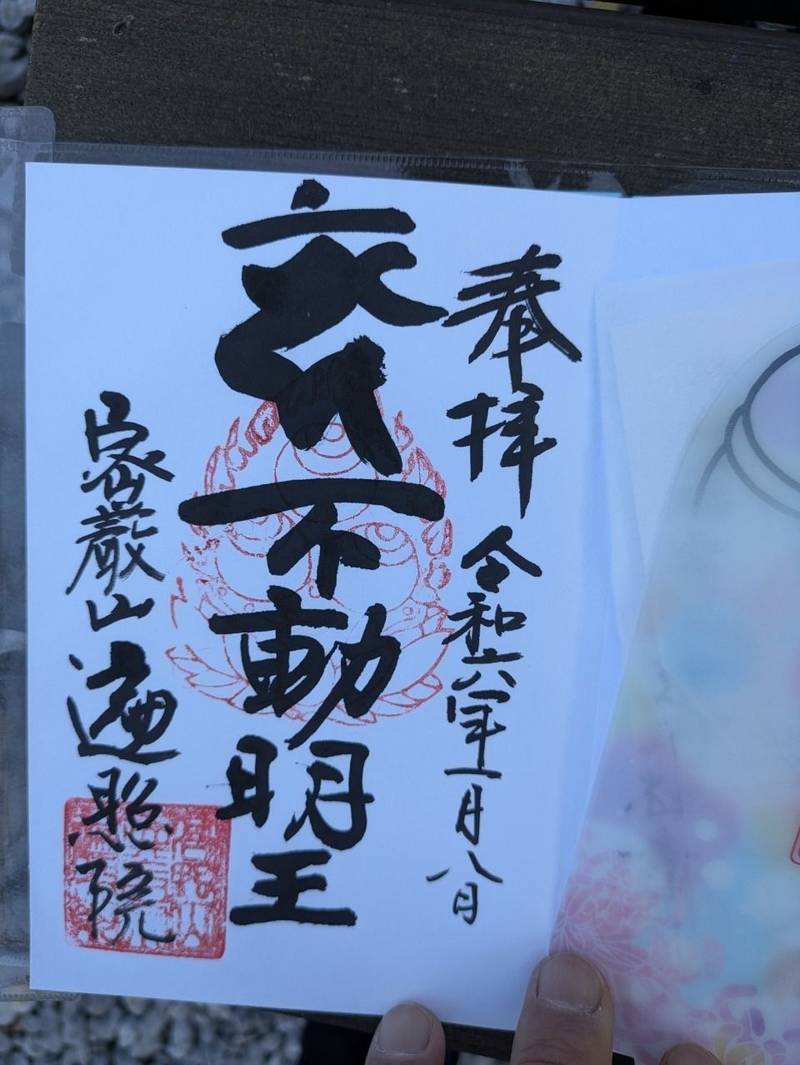 奉拝 令和六年一月八日
不動明王
密厳山 遍照院